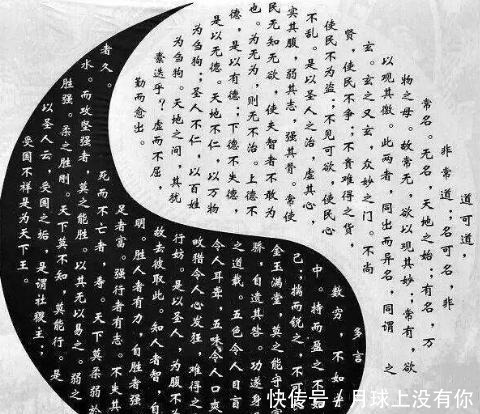 道可道，
非常道；名可名，非
常名。无名，天地之始；有名，万
物之母。故常无，欲以观其妙；常有，欲
以观其徼。此两者，同出而异名，同谓 之
玄。玄之又玄，众妙之门。不尚
贤，使民不争；不贵难得之货，
使民不为盗；不见可欲，使民心
不乱。是以圣人之治，虚其心，
实其腹，弱其志，强其骨。常使
民无知无欲，使夫智者不敢为
也。为无为，则无不治。上德不
德，是以有德；下德不失德，
是以无德。天地不仁，以万物
为刍狗；圣人不仁，以百姓
为刍狗。天地之间，其犹
迭乎？虚而不屈，
勤而愈出。
多言
数穷 不如
中。持而盈之不如
己；揣而锐之，不可
金玉满堂，莫之能守
骄，自遗其咎。功遂身
之道载。五色令人目盲
令人耳聋，五味令人口爽
畋猎令人心发狂，难得之
行妨。是以圣人，为腹不为
故去彼取此。知人者智，自
明。胜人者有力，自胜者强
足者富。强行者有志。不失其
者久。 死而不亡者 寿。天下莫柔弱於
水。而攻坚强者，莫之能胜。以其无以易之。弱之
胜强。柔之胜刚。天下莫不知，莫能行。是
以圣人云，受国之垢，是谓社稷主，
受国不祥是为天下王。
快传号/月球上没有你